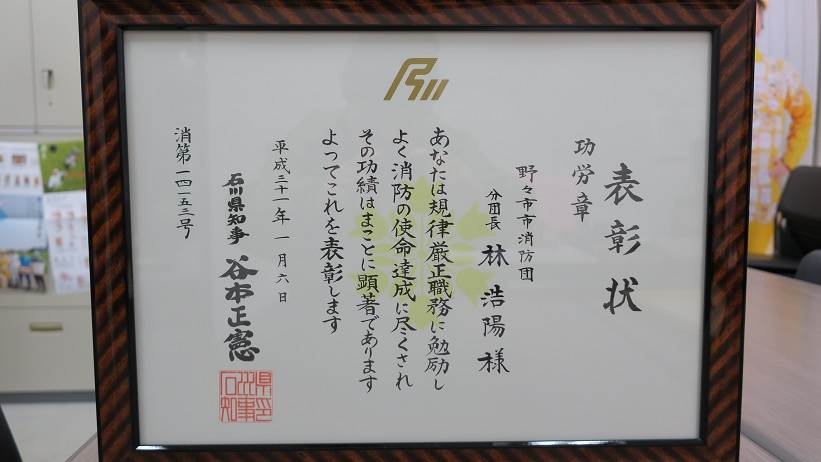 表彰状
功労章
野々市市消防団
分団長 林 浩陽 様
あなたは規律厳正職務に勉励し
よく消防の使命達成に尽くされ
その功績はまことに顕著であります
よってこれを表彰します
平成三十一年一月六日
石川県知事 谷本正憲
消第一四一五三号
石川県知事印